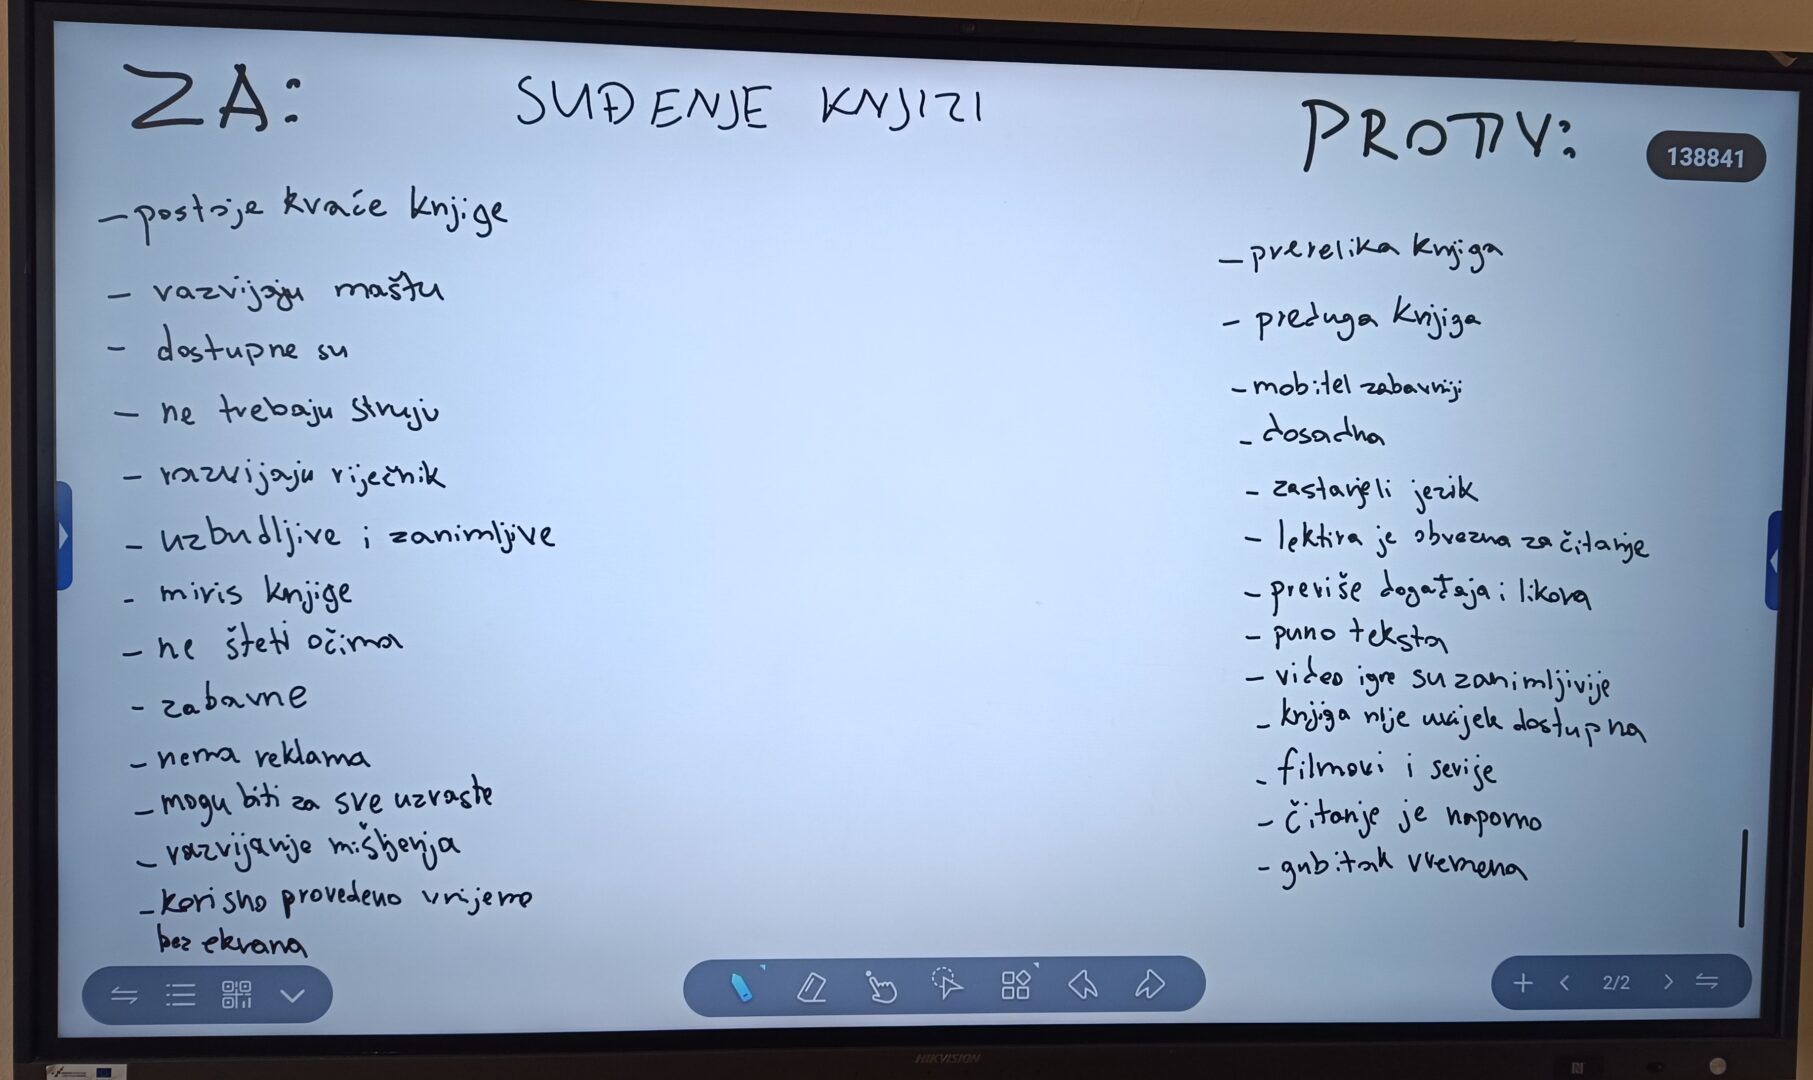 ZA:
SUĐENJE KNJIZI
PROTIV:
138841
- postoje kraće knjige
- razvijaju maštu
- dostupne su
- ne trebaju struju
- razvijaju riječnik
- uzbudljive i zanimljive
- miris knjige
- ne šteti očima
- zabavne
- nema reklama
- mogu biti za sve uzraste
- razvijanje mišljenja
- korisno provedeno vrijeme
bez ekrana
- prevelika knjiga
- preduga knjiga
- mobitel zabavniji
- dosadna
- zastarjeli jezik
- lektira je obvezna za čitanje
- previše događaja i likova
- puno teksta
- video igre su zanimljivije
- knjiga nije uvijek dostupna
- filmovi i serije
- čitanje je naporno
- gubitak vremena
2/2
HIKVISION